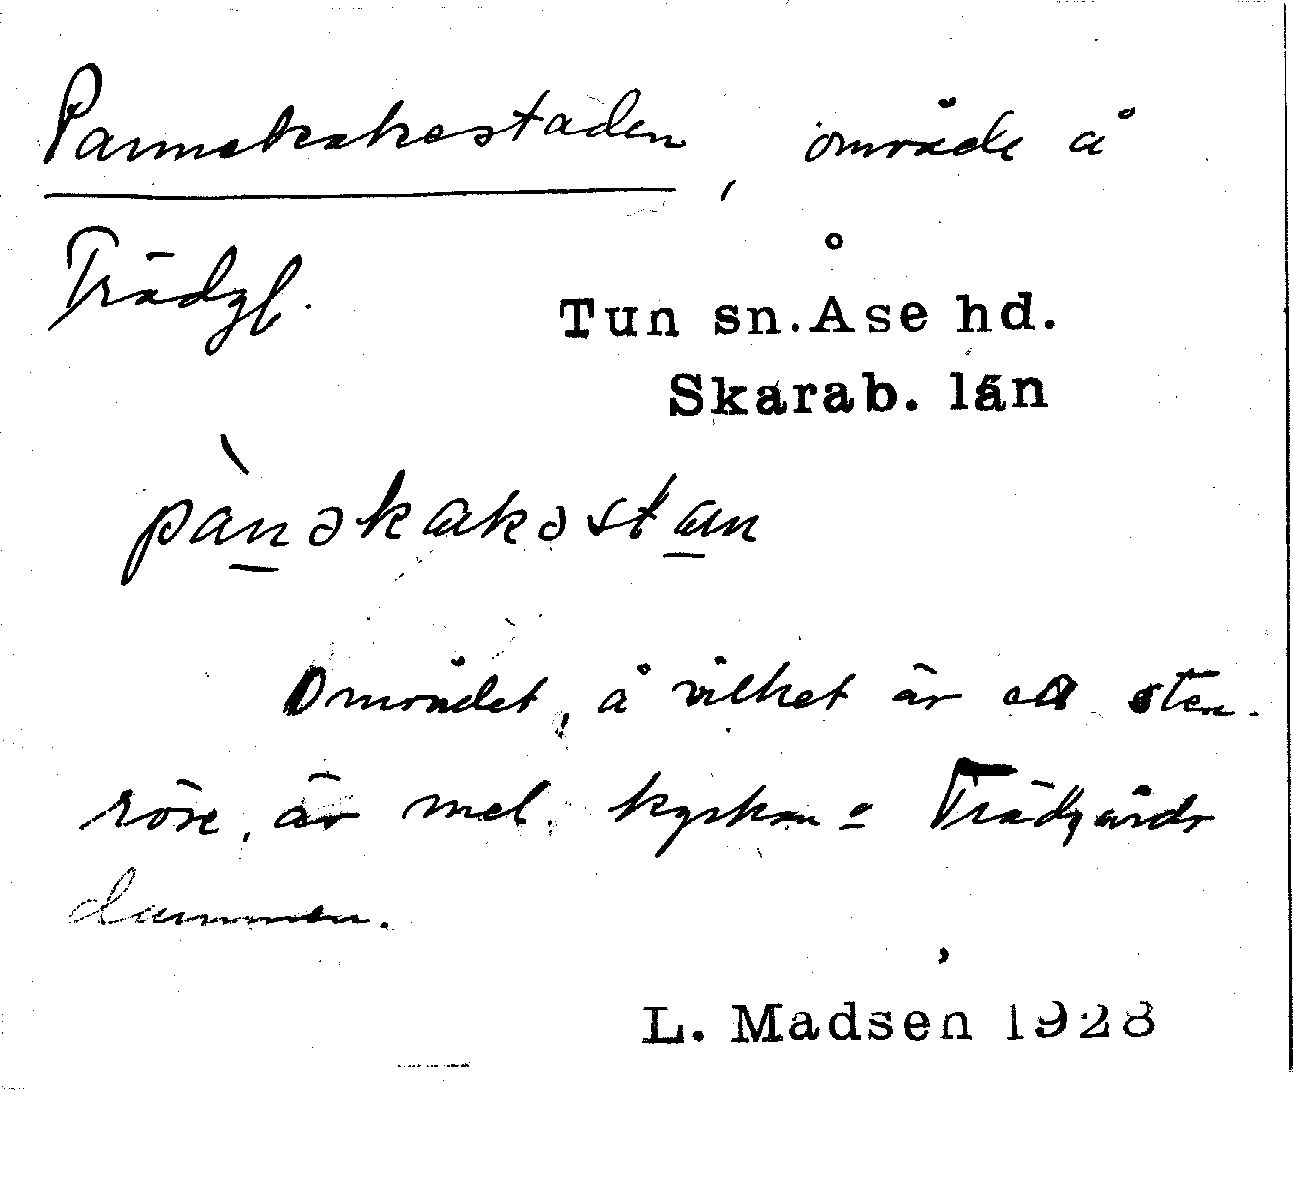 Pannekakestaden, område å
Trädgl.
Tun sn. Åse hd.
Skarab. län
pànəkakəstan
Området, å vilket är ett sten-
röse, är mel. kyrkan o Trädgårds
dammen.
L. Madsen 1928